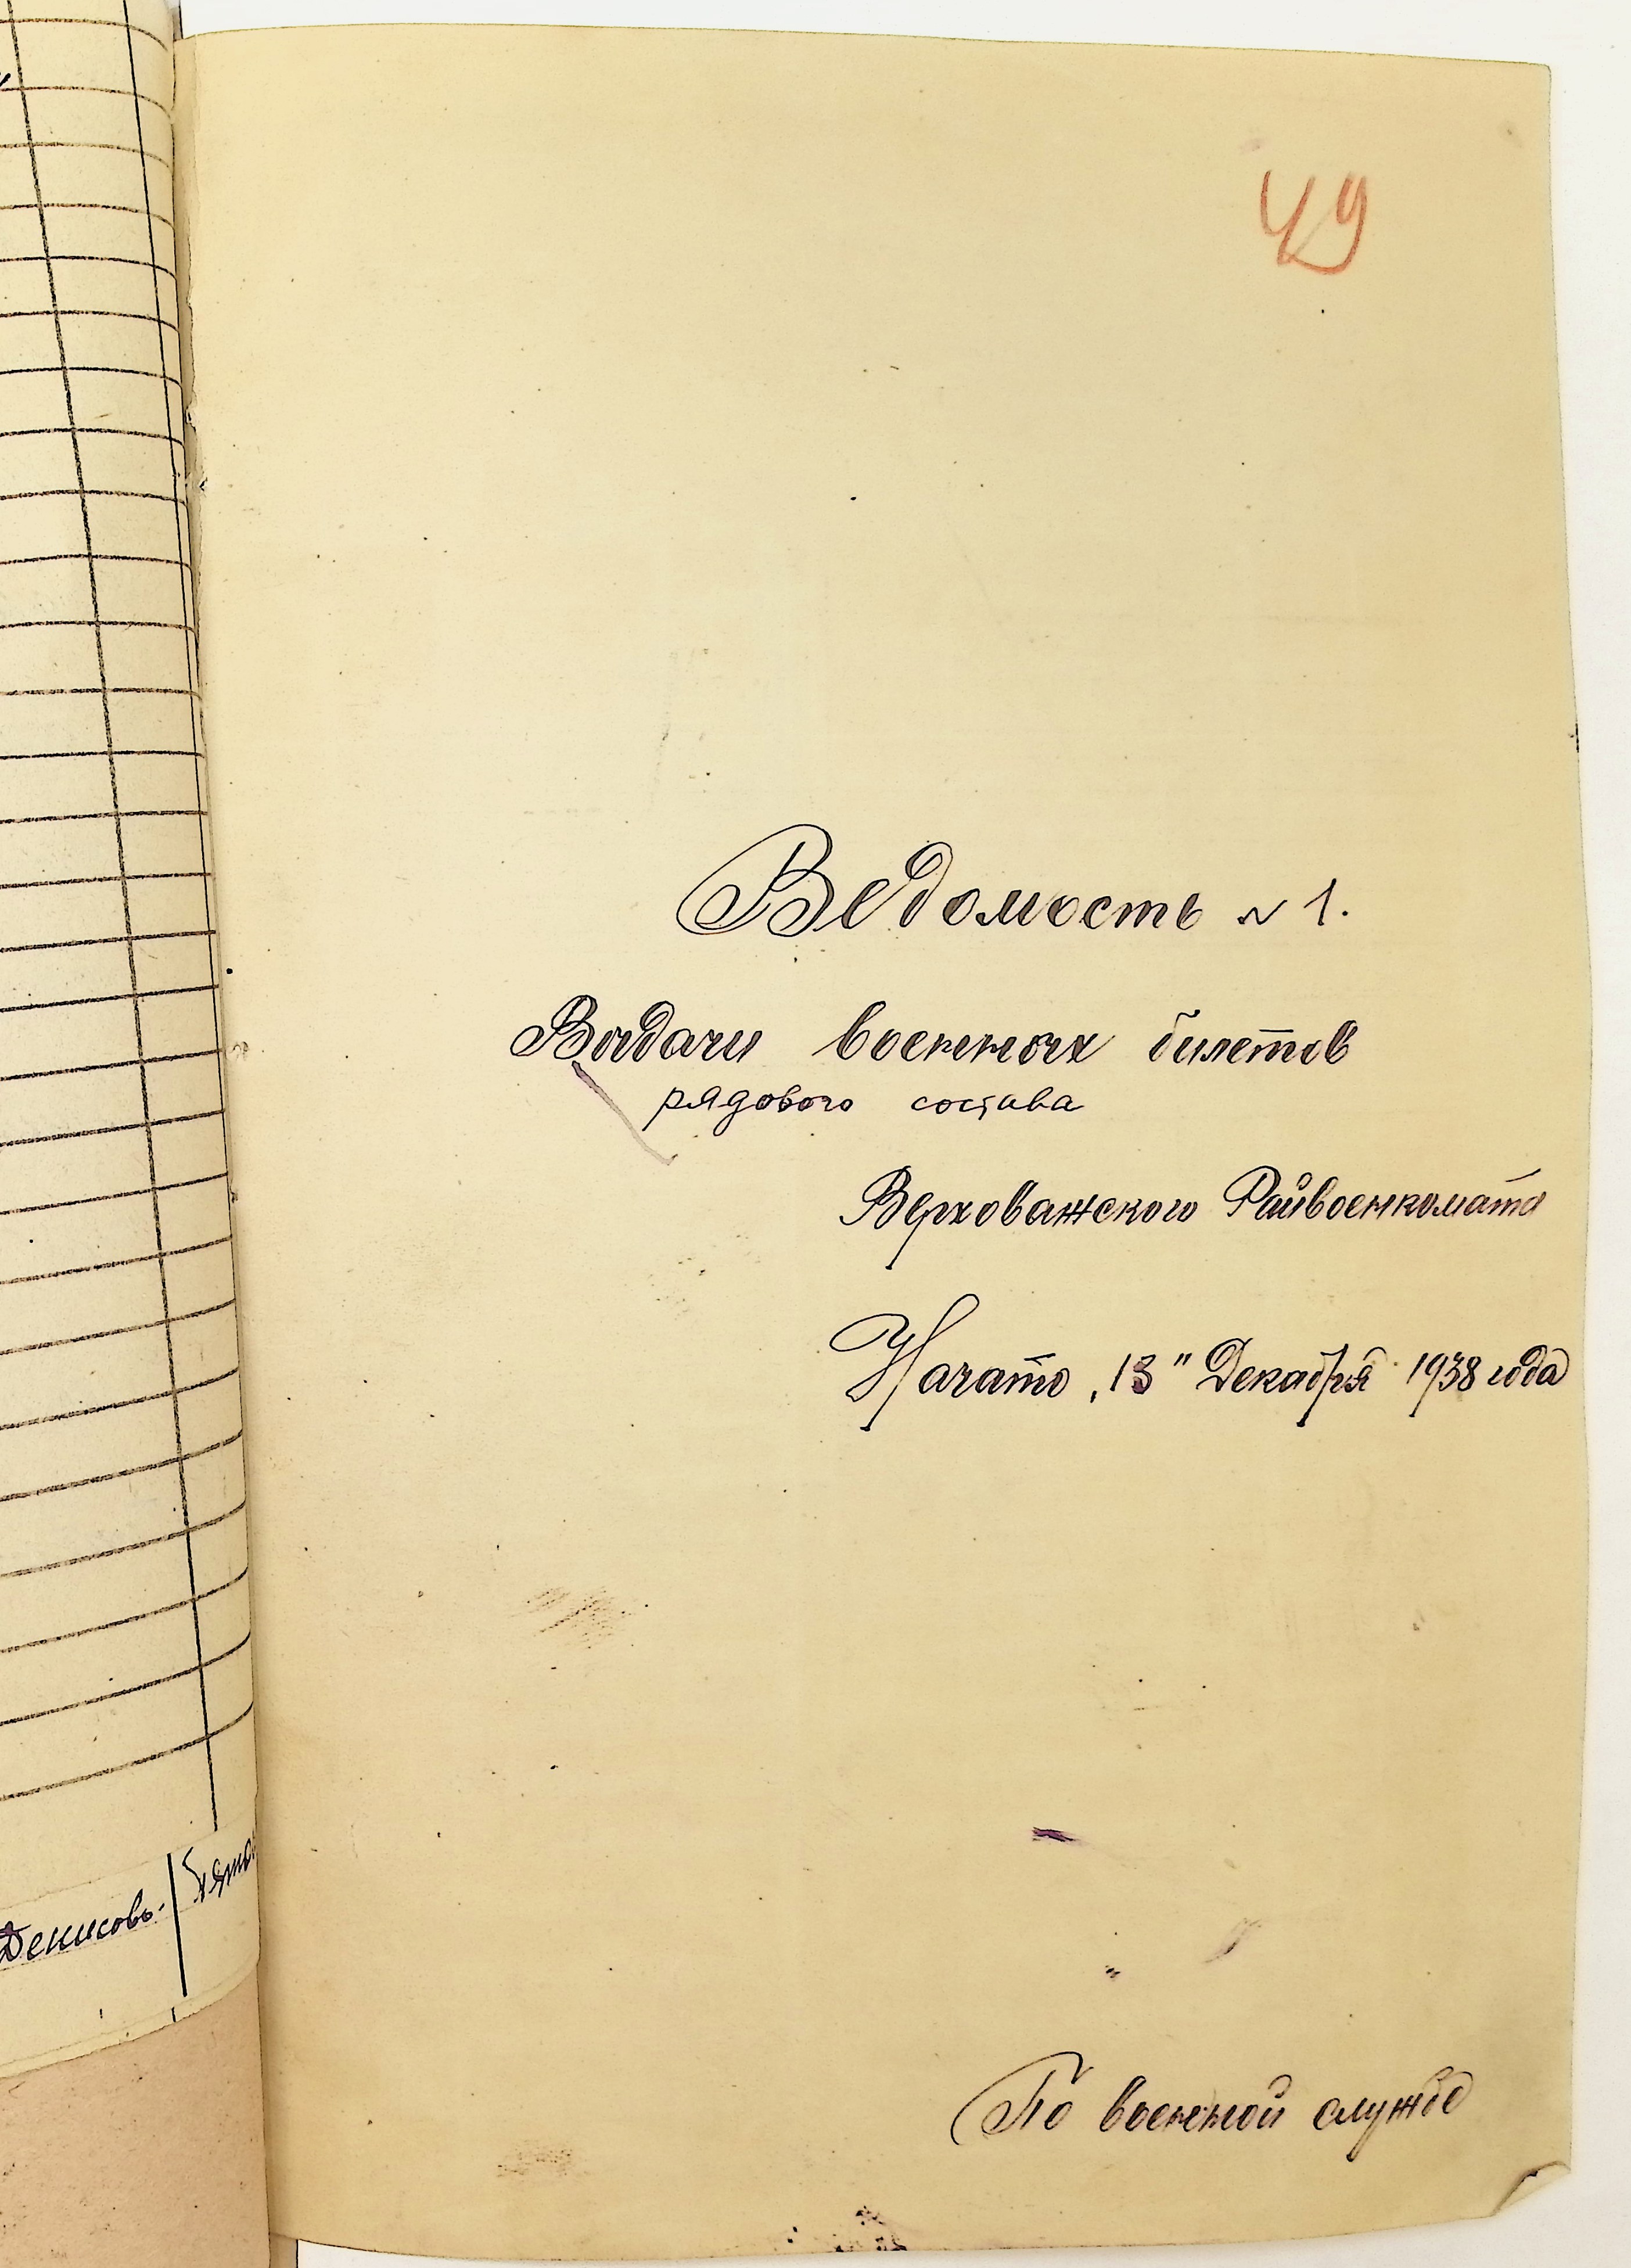 49
Ведомость № 1.
Выдачи военных билетов
рядового состава
Верховажского Райвоенкомата
Начато „13" Декабря 1938 года
Денисовъ.
По военной службе